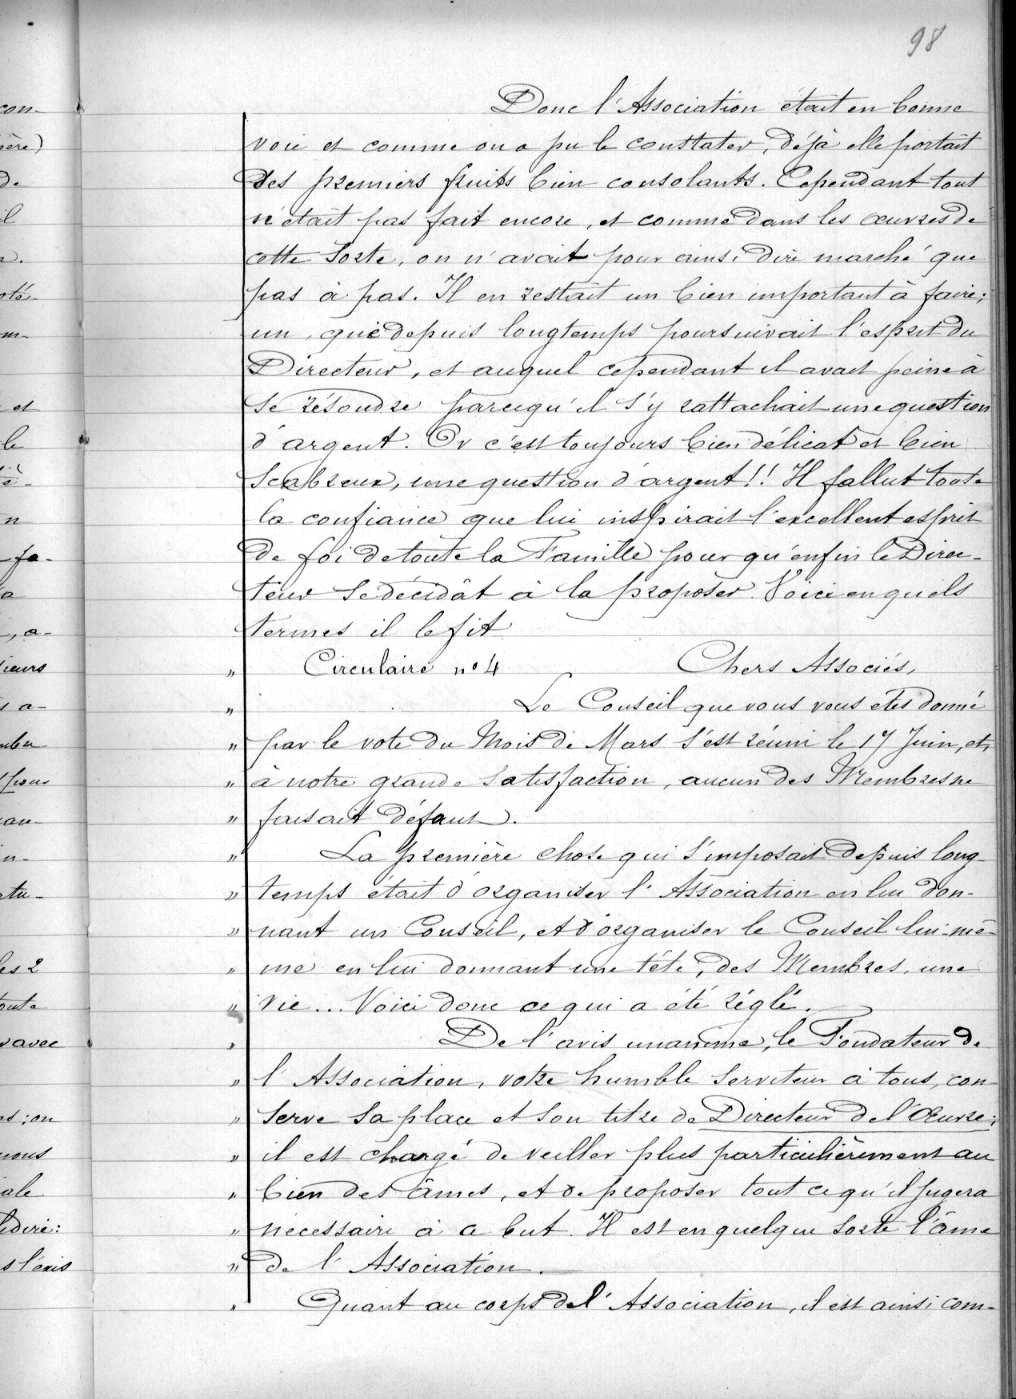 98
Donc l'Association était en bonne
voie et comme on a pu le constater, déjà elle portait
des premiers fruits bien consolants. Cependant tout
n'était pas fait encore, et comme dans les œuvres de
cette sorte, on n'avait pour ainsi dire marché que
pas à pas. Il en restait un bien important à faire;
un, que depuis longtemps poursuivait l'esprit du
Directeur, et auquel cependant il avait peine à
se résoudre parcequ'il s'y rattachait une question
d'argent. Or c'est toujours bien délicat et bien
scabreux, une question d'argent!! Il fallut toute
la confiance que lui inspirait l'excellent esprit
de foi de toute la Famille pour qu'enfin le Direc-
teur se décidât à la proposer. Voici en quels
termes il le fit
" Circulaire n° 4 Chers Associés,
" Le Conseil que vous vous êtes donné
" par le vote du Mois de Mars s'est réuni le 17 Juin, et,
" à notre grande satisfaction, aucun des Membres ne
" faisait défaut.
" La première chose qui s'imposait depuis long-
" temps était d'organiser l'Association en lui don-
" nant un Conseil, et d'organiser le Conseil lui-mê-
" me en lui donnant une tête, des Membres, une
" vie... Voici donc ce qui a été réglé.
" De l'avis unanime, le Fondateur de
" l'Association, votre humble serviteur à tous, con-
" serve sa place et son titre de Directeur de l'Œuvre;
" il est chargé de veiller plus particulièrement au
" bien des âmes, et de proposer tout ce qu'il jugera
" nécessaire à ce but. Il est en quelque sorte l'âme
" de l'Association.
" Quant au corps de l'Association, il est ainsi com-